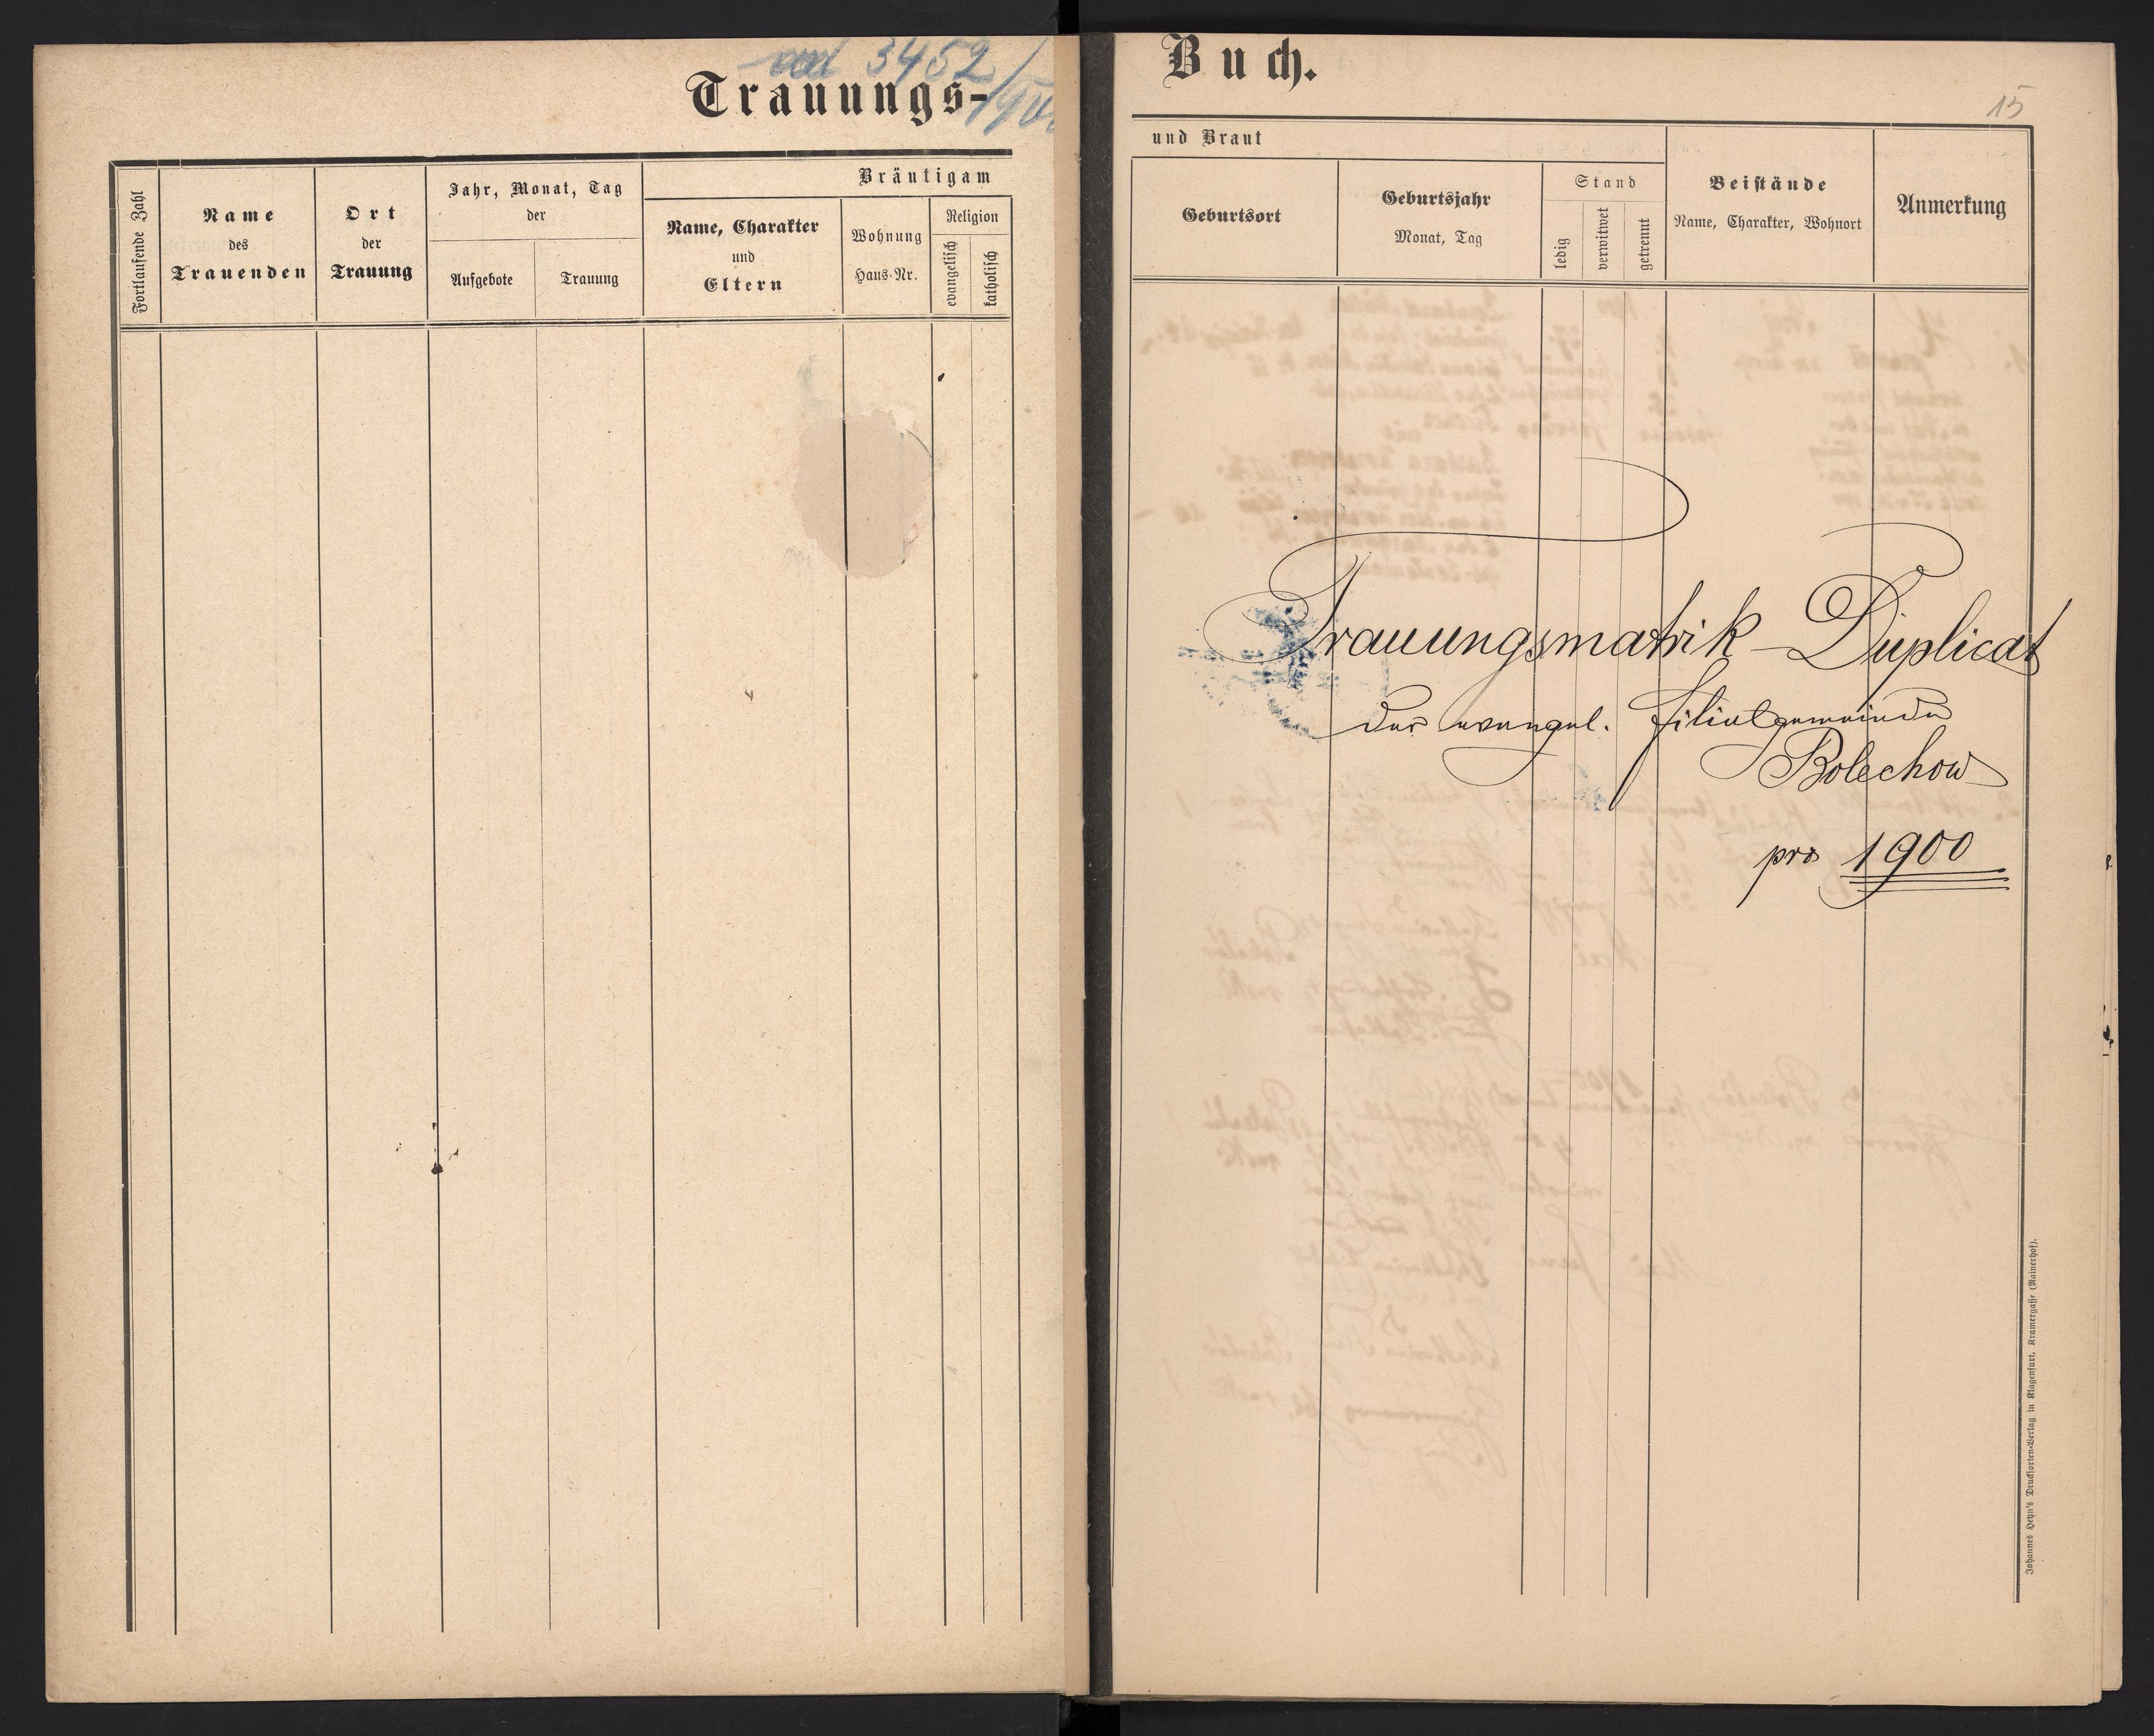 ad 3452/
Trauungs-
Fortlaufende Zahl
Name
des
Trauenden
Ort
der
Trauung
Jahr, Monat, Tag
der
Aufgebote
Trauung
Bräutigam
Name, Charakter
und
Eltern
Wohnung
Haus-Nr.
Religion
evangelisch
katholisch
Buch.
15
und Braut
Geburtsort
Geburtsjahr
Monat, Tag
Stand
ledig
verwitwet
getrennt
Beistände
Name, Charakter, Wohnort
Anmerkung
Trauungsmatrik-Duplicat
der evangel. Filialgemeinde
Bolechow
pro 1900
Johannes Heyn's Drucksorten-Verlag in Klagenfurt, Kramergasse (Rainerhof).